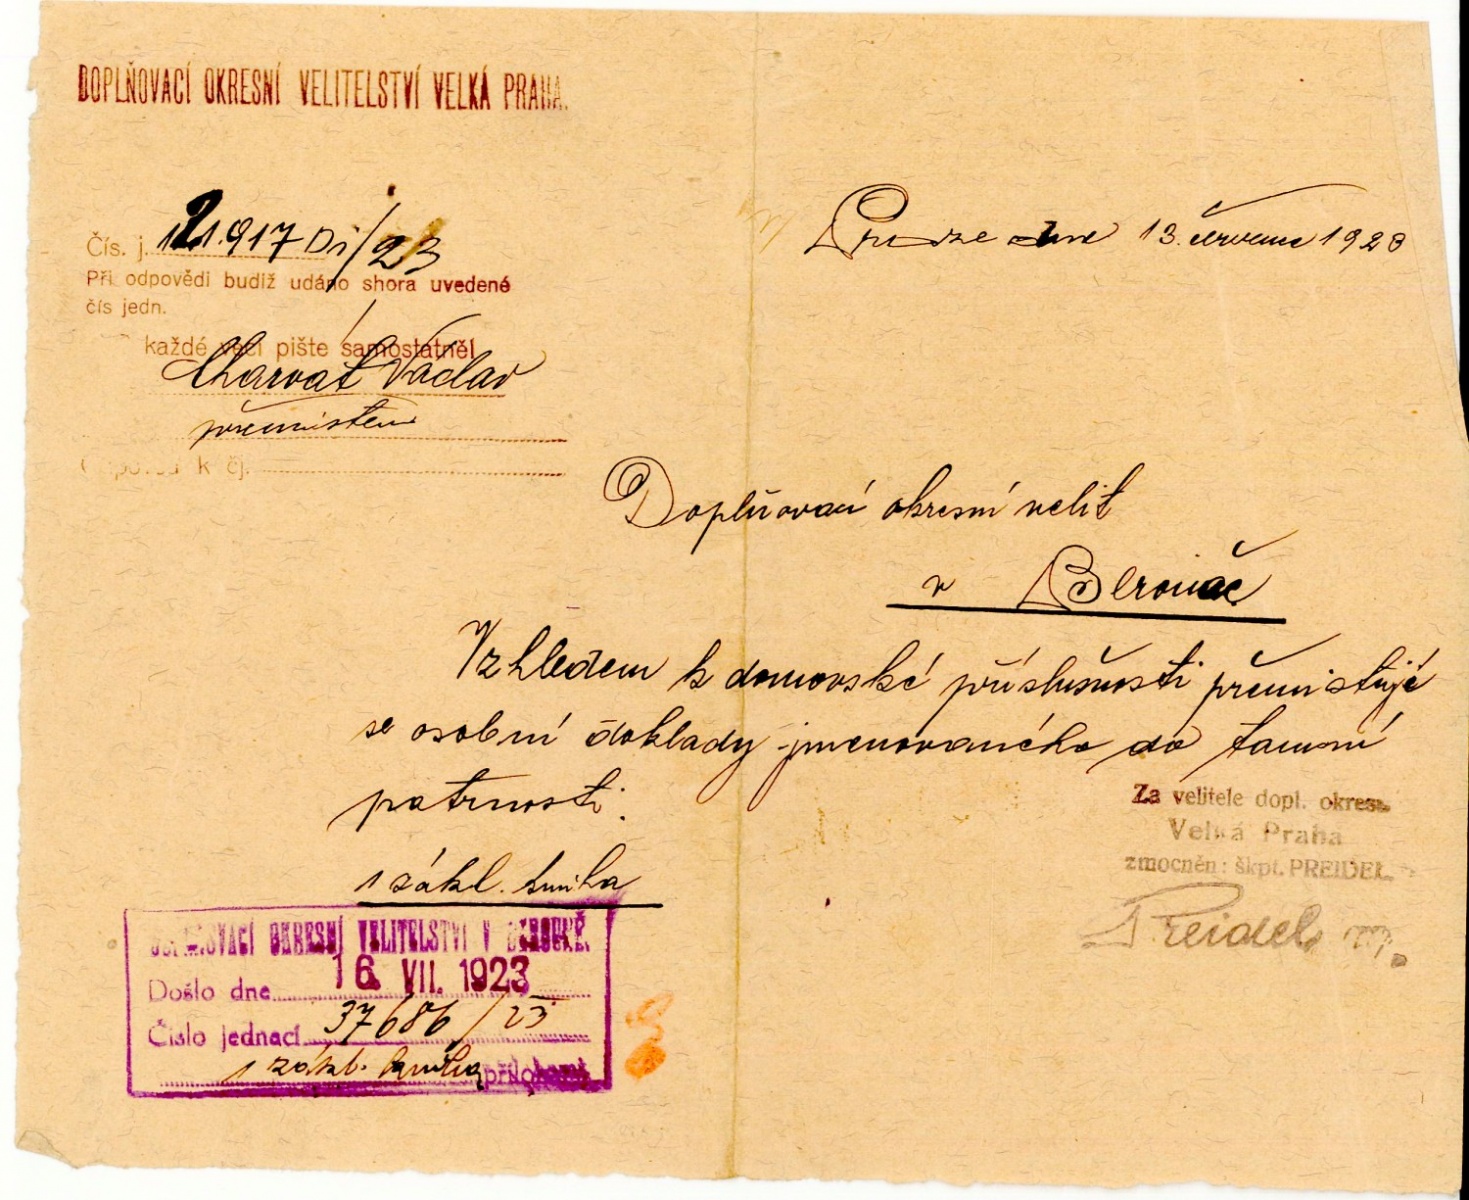 DOPLŇOVACÍ OKRESNÍ VELITELSTVÍ VELKÁ PRAHA.
Praze dne 13. července 1923
Čís. j. 121.917 Di/23
Při odpovědi budiž udáno shora uvedené
čís jedn.
každé věci pište samostatně!
Charvát Václav
přemístění
Odpověď k čj.
Doplňovací okresní velit
v Berouně
Vzhledem k domovské příslušnosti přemistují
se osobní doklady jmenovaného do tamní
patrnosti.
Za velitele dopl. okresu
Velká Praha
zmocněn: škpt. PREIDEL
Preidel mp.
1 zákl. kniha
DOPLŇOVACÍ OKRESNÍ VELITELSTVÍ V BEROUNĚ.
Došlo dne 16. VII. 1923
Číslo jednací 37686/23
1 zákl. kniha přílohami